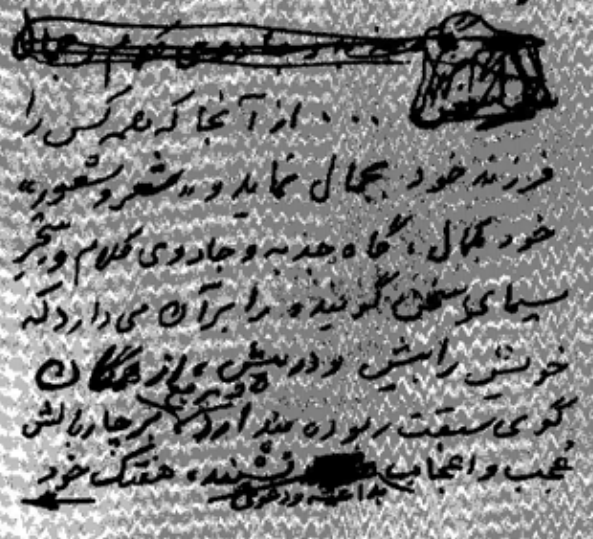 ... از آنجا که همه کس را
فرزند خود بجمال نماید و «شعر و شعور»
خود بکمال، گاه جذبه و جادوی کلام و سحر
سیمای سخن گوینده را بر آن می‌دارد که
خویش را بیش و در پیش، از همگان
گوی سبقت ربوده پندارد و بر چاربالش
عجب و اعجاب نشیند، هفتک خود